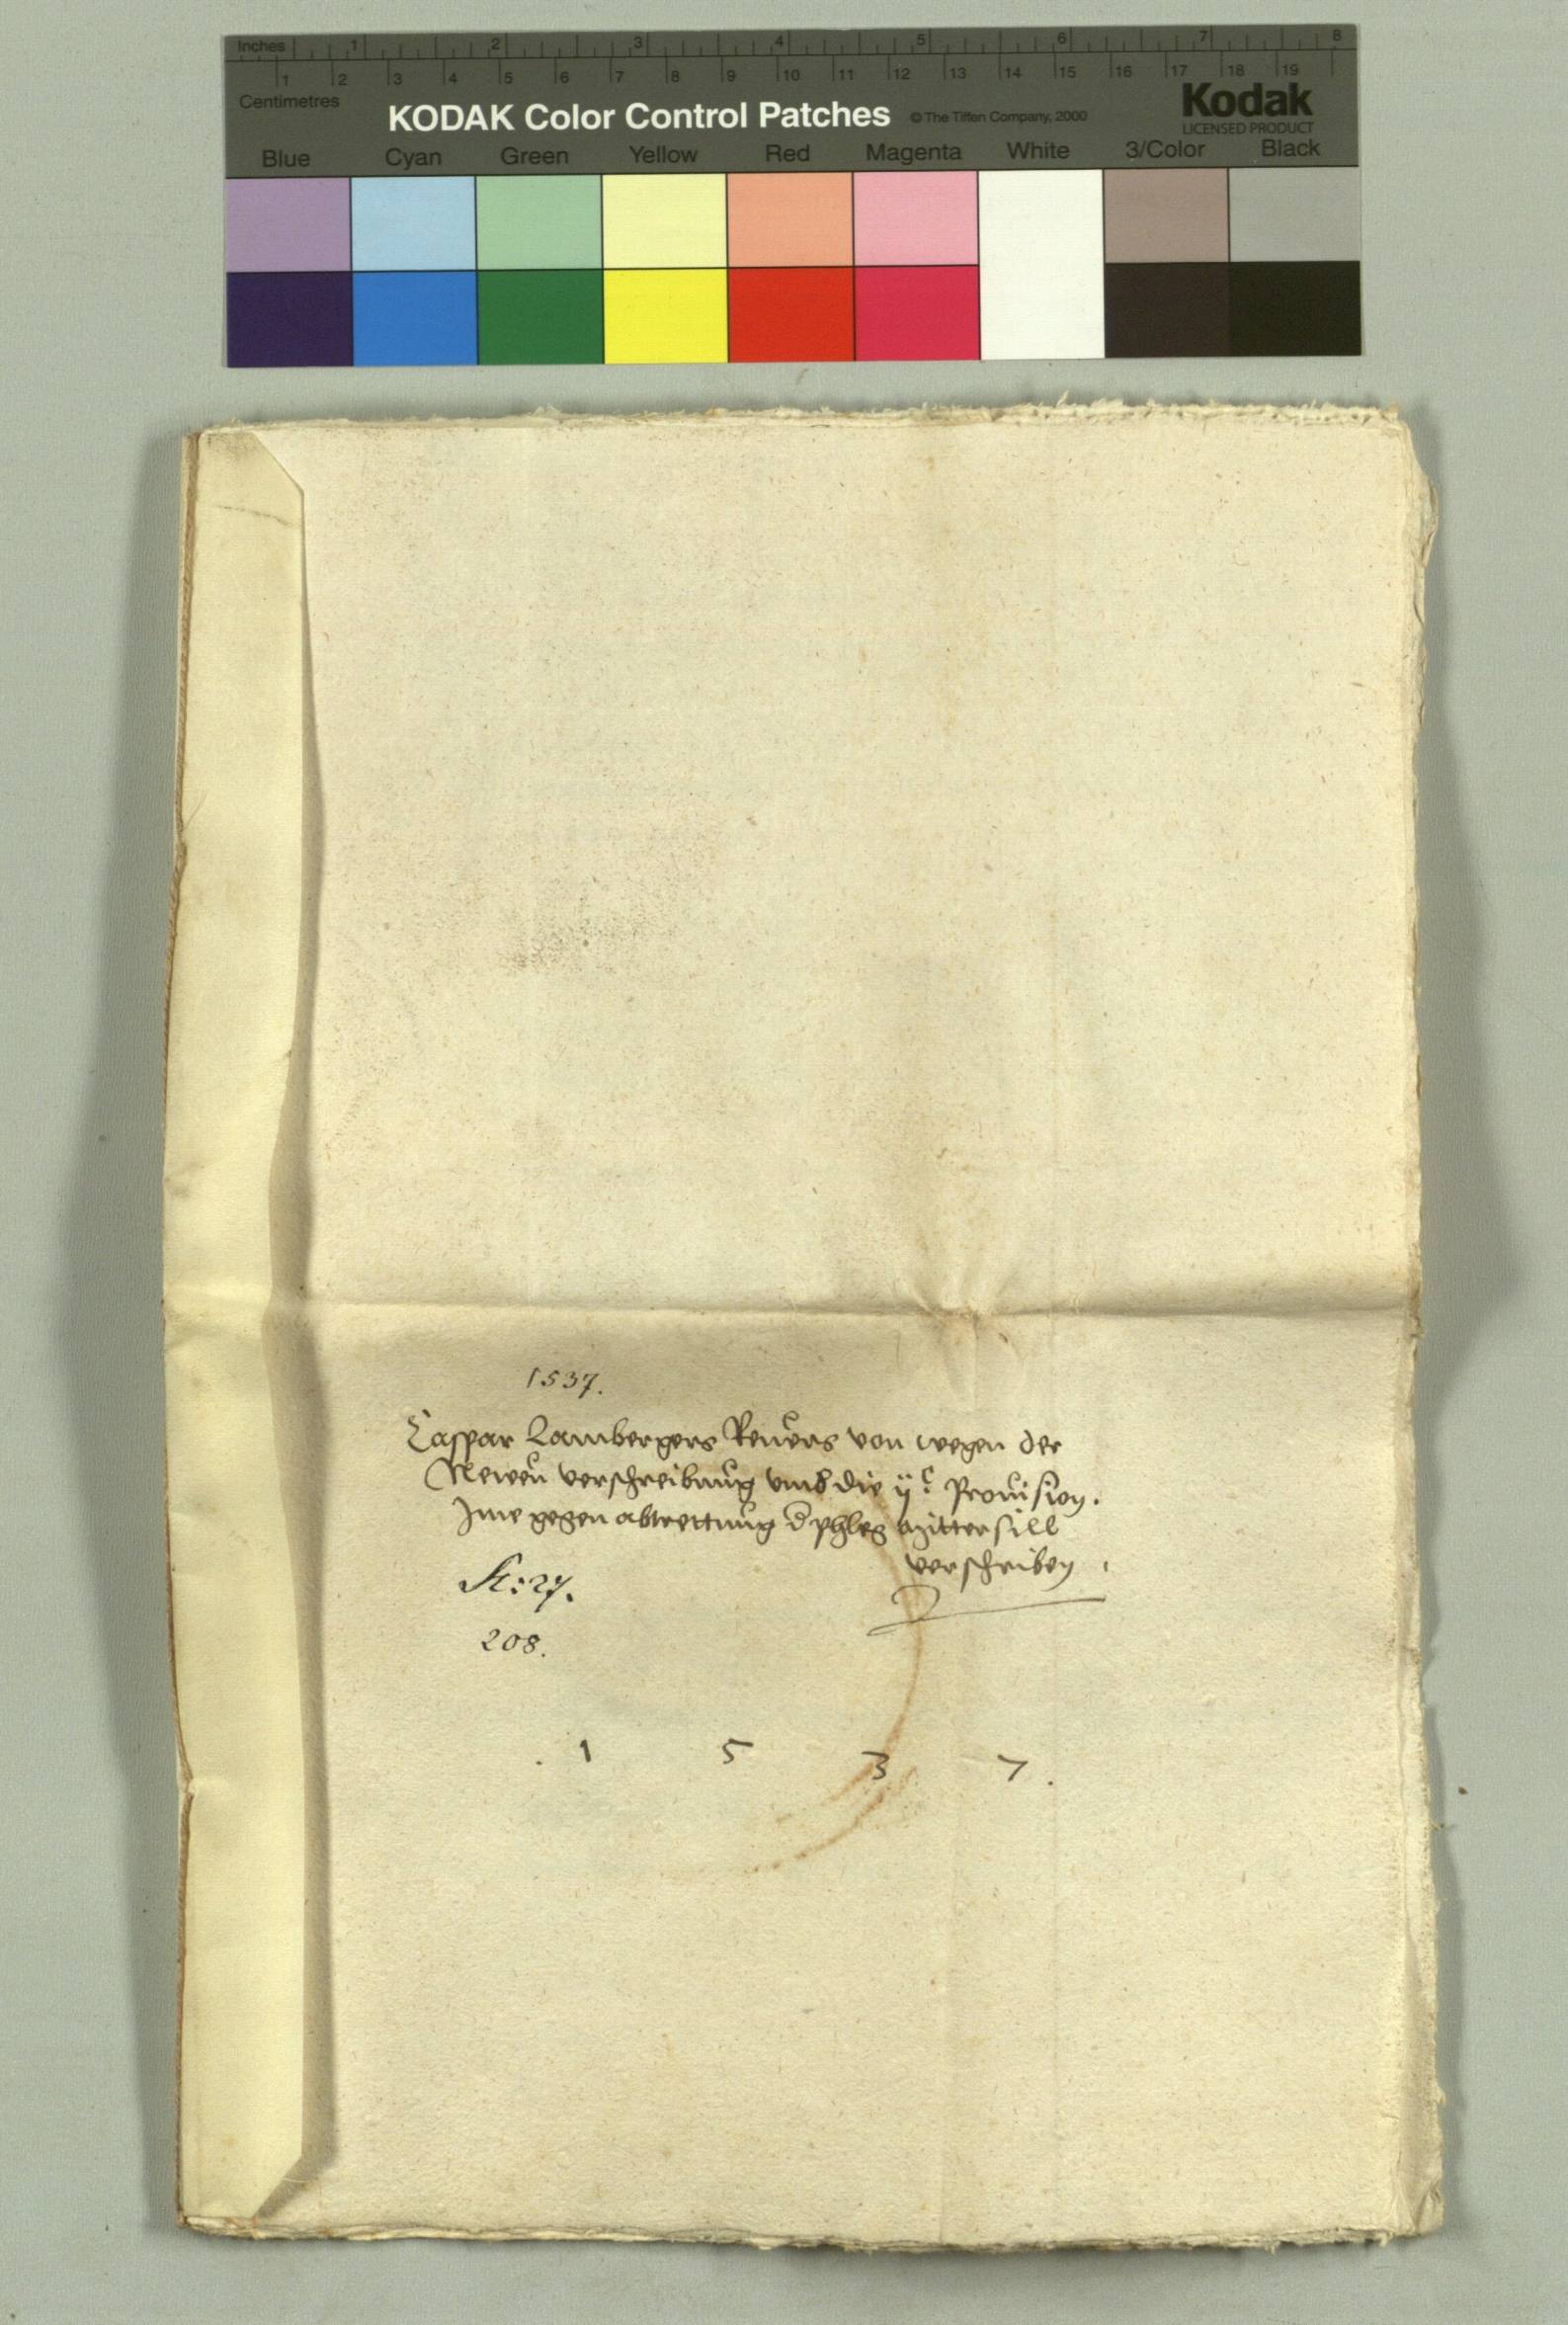 Inches 1 2 3 4 5 6 7 8
1 2 3 4 5 6 7 8 9 10 11 12 13 14 15 16 17 18 19
Centimetres
KODAK Color Control Patches © The Tiffen Company, 2000 Kodak
LICENSED PRODUCT
Blue Cyan Green Yellow Red Magenta White 3/Color Black
1537.
Caspar Lambergers Reuers von wegen der
Newen verschreibung vmb die ijc Prouision.
Ime gegen abtrettung d phleg Mittersill
verschriben
St: 27.
208.
. 1 5 3 7 .